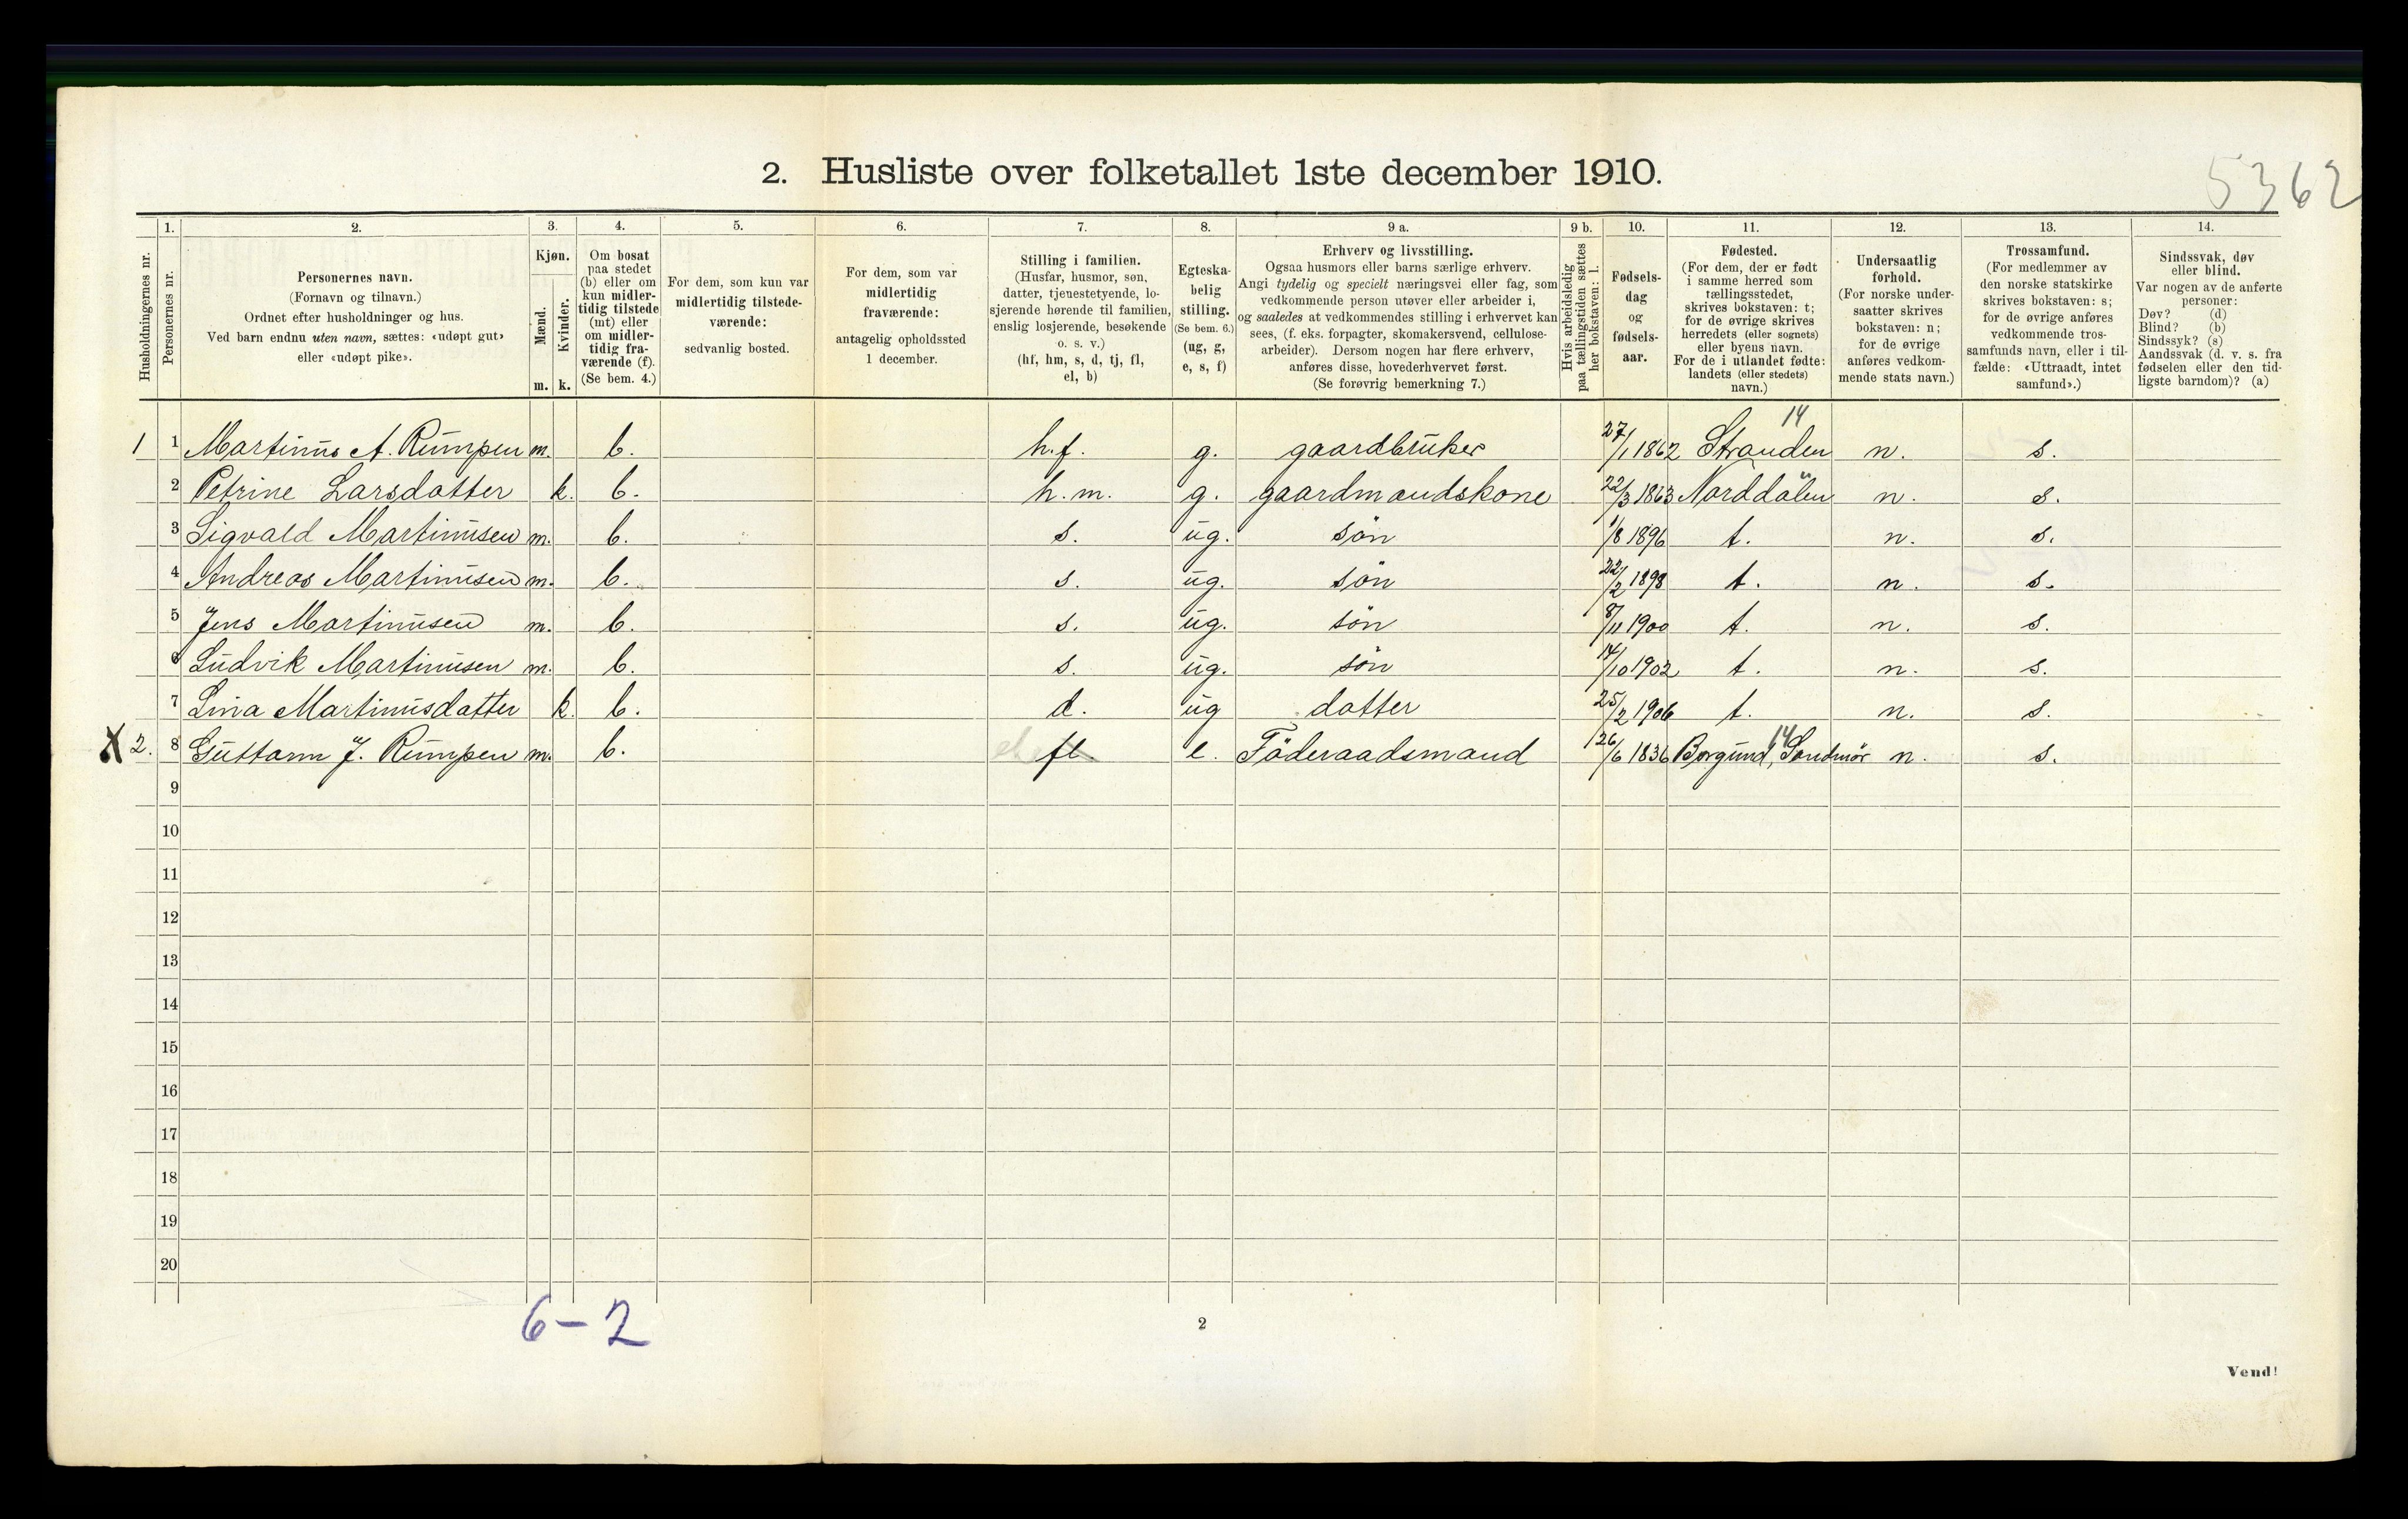 2. Husliste over folketallet 1ste december 1910.
5362
Husholdningernes nr.
1.
Personernes nr.
2.
Personernes navn.
(Fornavn og tilnavn.)
Ordnet efter husholdninger og hus.
Ved barn endnu uten navn, sættes: «udøpt gut»
eller «udøpt pike».
3.
Kjøn.
Mænd.
Kvinder.
m. k.
4.
Om bosat
paa stedet
(b) eller om
kun midler-
tidig tilstede
(mt) eller
om midler-
tidig fra-
værende (f).
(Se bem. 4.)
5.
For dem, som kun var
midlertidig tilstede-
værende:
sedvanlig bosted.
6.
For dem, som var
midlertidig
fraværende:
antagelig opholdssted
1 december.
7.
Stilling i familien.
(Husfar, husmor, søn,
datter, tjenestetyende, lo-
sjerende hørende til familien,
enslig losjerende, besøkende
o. s. v.)
(hf, hm, s, d, tj, fl,
el, b)
8.
Egteska-
belig
stilling.
(Se bem. 6.)
(ug, g,
e, s, f)
9 a.
Erhverv og livsstilling.
Ogsaa husmors eller barns særlige erhverv.
Angi tydelig og specielt næringsvei eller fag, som
vedkommende person utøver eller arbeider i,
og saaledes at vedkommendes stilling i erhvervet kan
sees, (f. eks. forpagter, skomakersvend, cellulose-
arbeider). Dersom nogen har flere erhverv,
anføres disse, hovederhvervet først.
(Se forøvrig bemerkning 7.)
9 b.
Hvis arbeidsledig
paa tællingstiden sættes
her bokstaven: l.
10.
Fødsels-
dag
og
fødsels-
aar.
11.
Fødested.
(For dem, der er født
i samme herred som
tællingsstedet,
skrives bokstaven: t;
for de øvrige skrives
herredets (eller sognets)
eller byens navn.
For de i utlandet fødte:
landets (eller stedets)
navn.)
12.
Undersaatlig
forhold.
(For norske under-
saatter skrives
bokstaven: n;
for de øvrige
anføres vedkom-
mende stats navn.)
13.
Trossamfund.
(For medlemmer av
den norske statskirke
skrives bokstaven: s;
for de øvrige anføres
vedkommende tros-
samfunds navn, eller i til-
fælde: «Uttraadt, intet
samfund».)
14.
Sindssvak, døv
eller blind.
Var nogen av de anførte
personer:
Døv? (d)
Blind? (b)
Sindssyk? (s)
Aandssvak (d. v. s. fra
fødselen eller den tid-
ligste barndom)? (a)
14
1 1 Martinus A. Rumpen m. b. h.f. g. gaardbruker 27/1 1862 Stranden n. s.
2 Petrine Larsdatter k. b. h.m. g. gaardmandskone 22/3 1863 Norddalen n. s.
3 Sigvald Martinusen m. b. s. ug. søn 1/8 1896 t. n. s.
4 Andreas Martinusen m. b. s. ug. søn 22/2 1898 t. n. s.
5 Jens Martinusen m. b. s. ug. søn 8/11 1900 t. n. s.
6 Ludvik Martinusen m. b. s. ug. søn 14/10 1902 t. n. s.
7 Lina Martinusdatter k. b. d. ug datter 25/2 1906 t. n. s.
14
X 2. 8 Guttorm J. Rumpen m. b. el fl. e. Föderaadsmand 26/6 1836 Borgund, Søndmør n. s.
9
10
11
12
13
14
15
16
17
18
19
20
6-2
2
Vend!